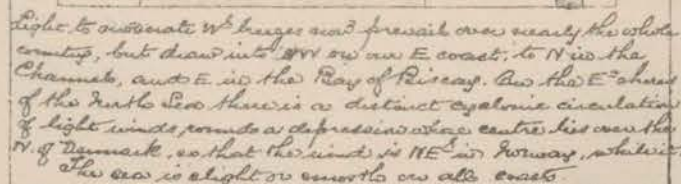 Light to moderate Wly breezes now prevail over nearly the whole
country, but draw into NW on our E coast, to N in the
Channel, and E in the Bay of Biscay. On the Eern shores
of the North Sea there is a distinct cyclonic circulation
of light winds, round a depression whose centre lies over the
N. of Denmark, so that the wind is NEly in Norway, while it
The sea is slight or smooth on all coasts.